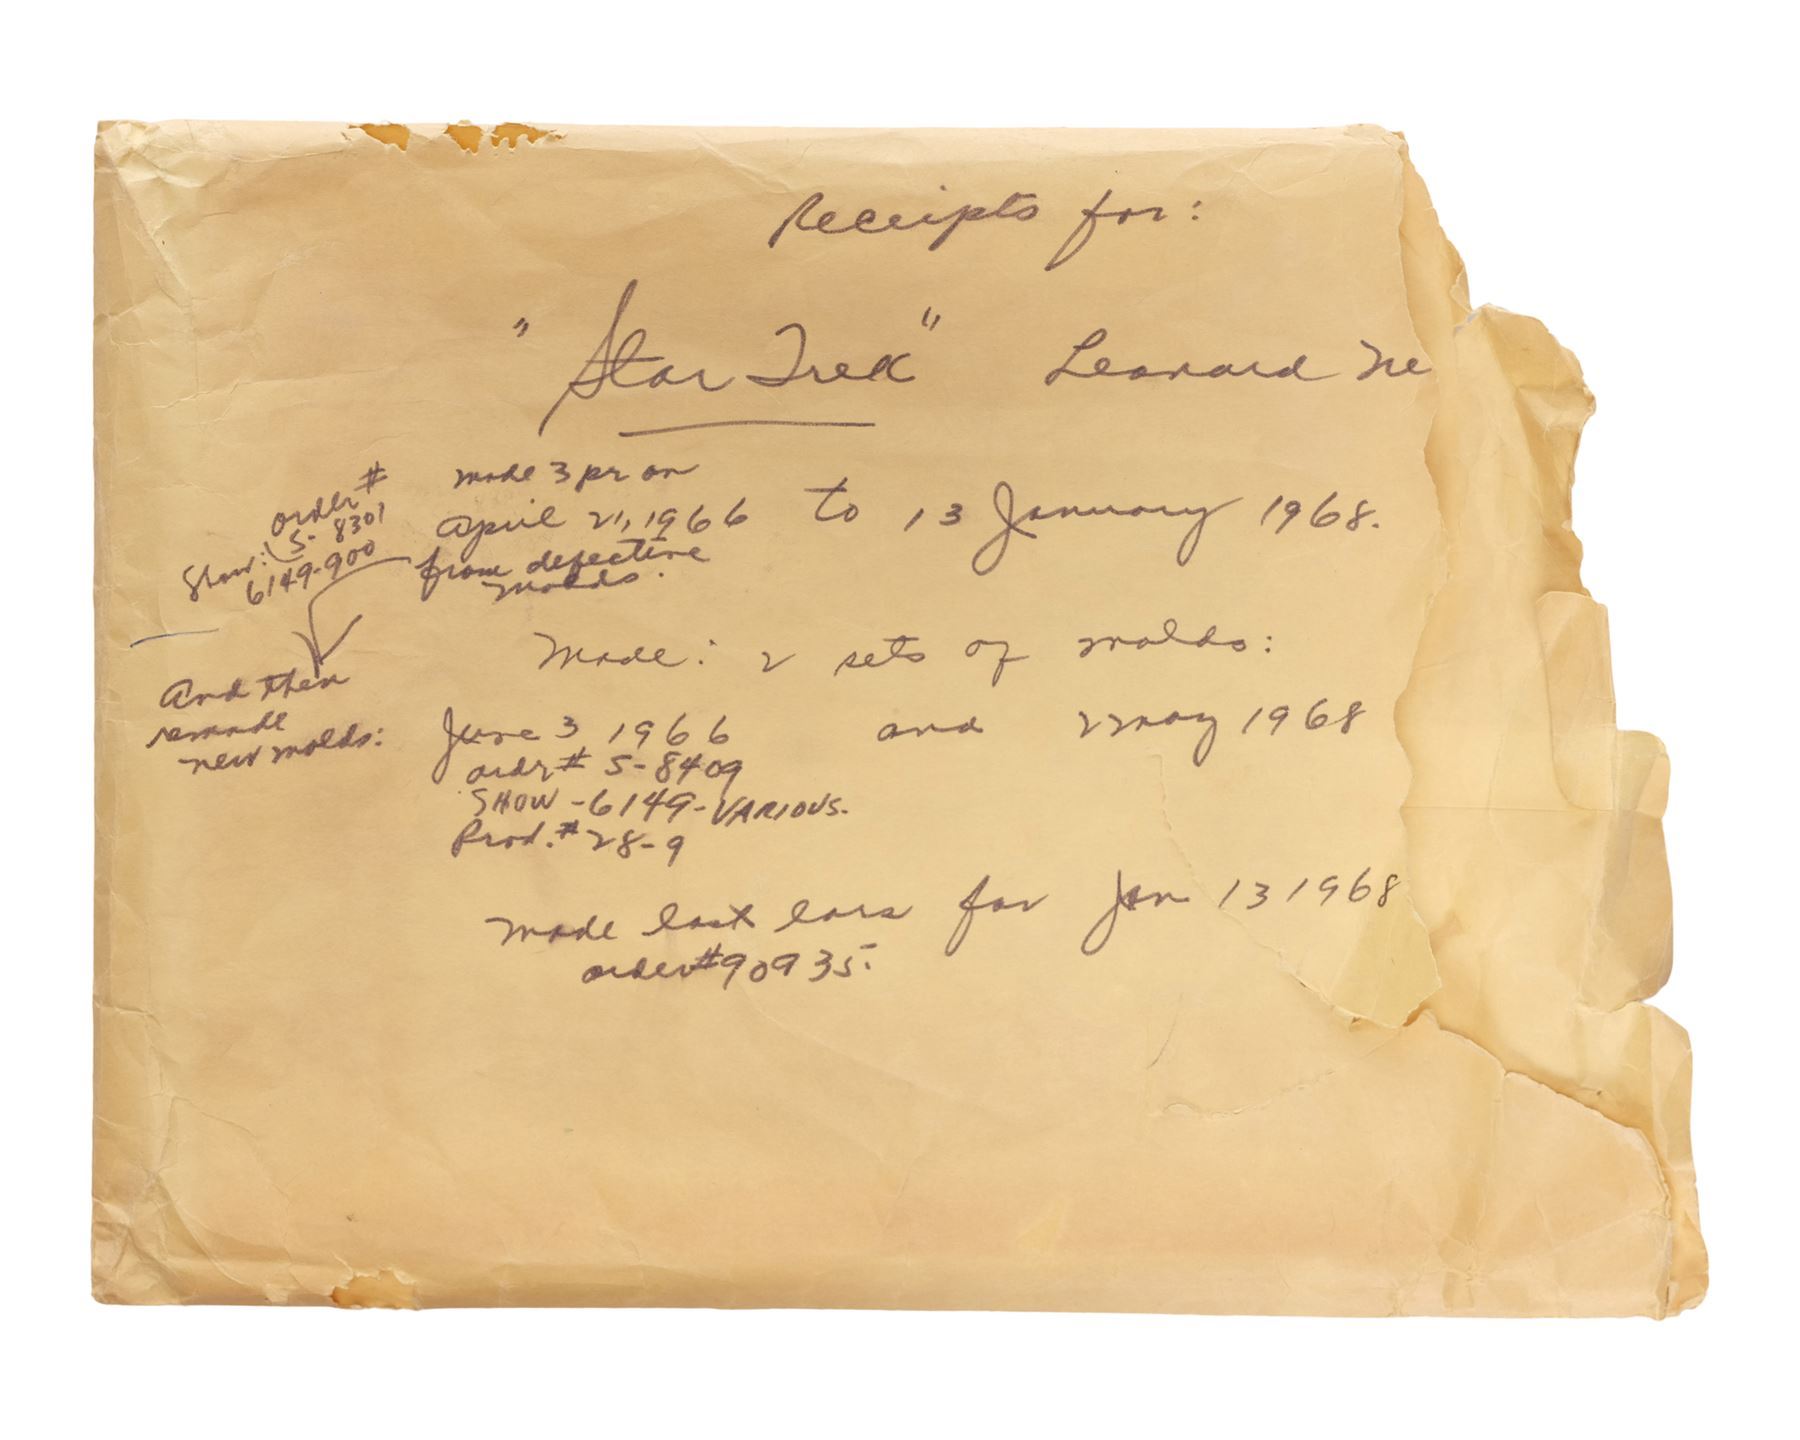 Receipts for:
"Star Trek" Leonard Ne
order #
S-8301
Show:
6149-900
made 3 pr on
April 21, 1966 to 13 January 1968.
from defective
molds.
And then
remade
new molds:
Made: 2 sets of molds:
June 3 1966 and 2 May 1968
order # S-8409
SHOW-6149-VARIOUS.
Prod. # 28-9
Made last ears for Jan 13 1968
order #90935.